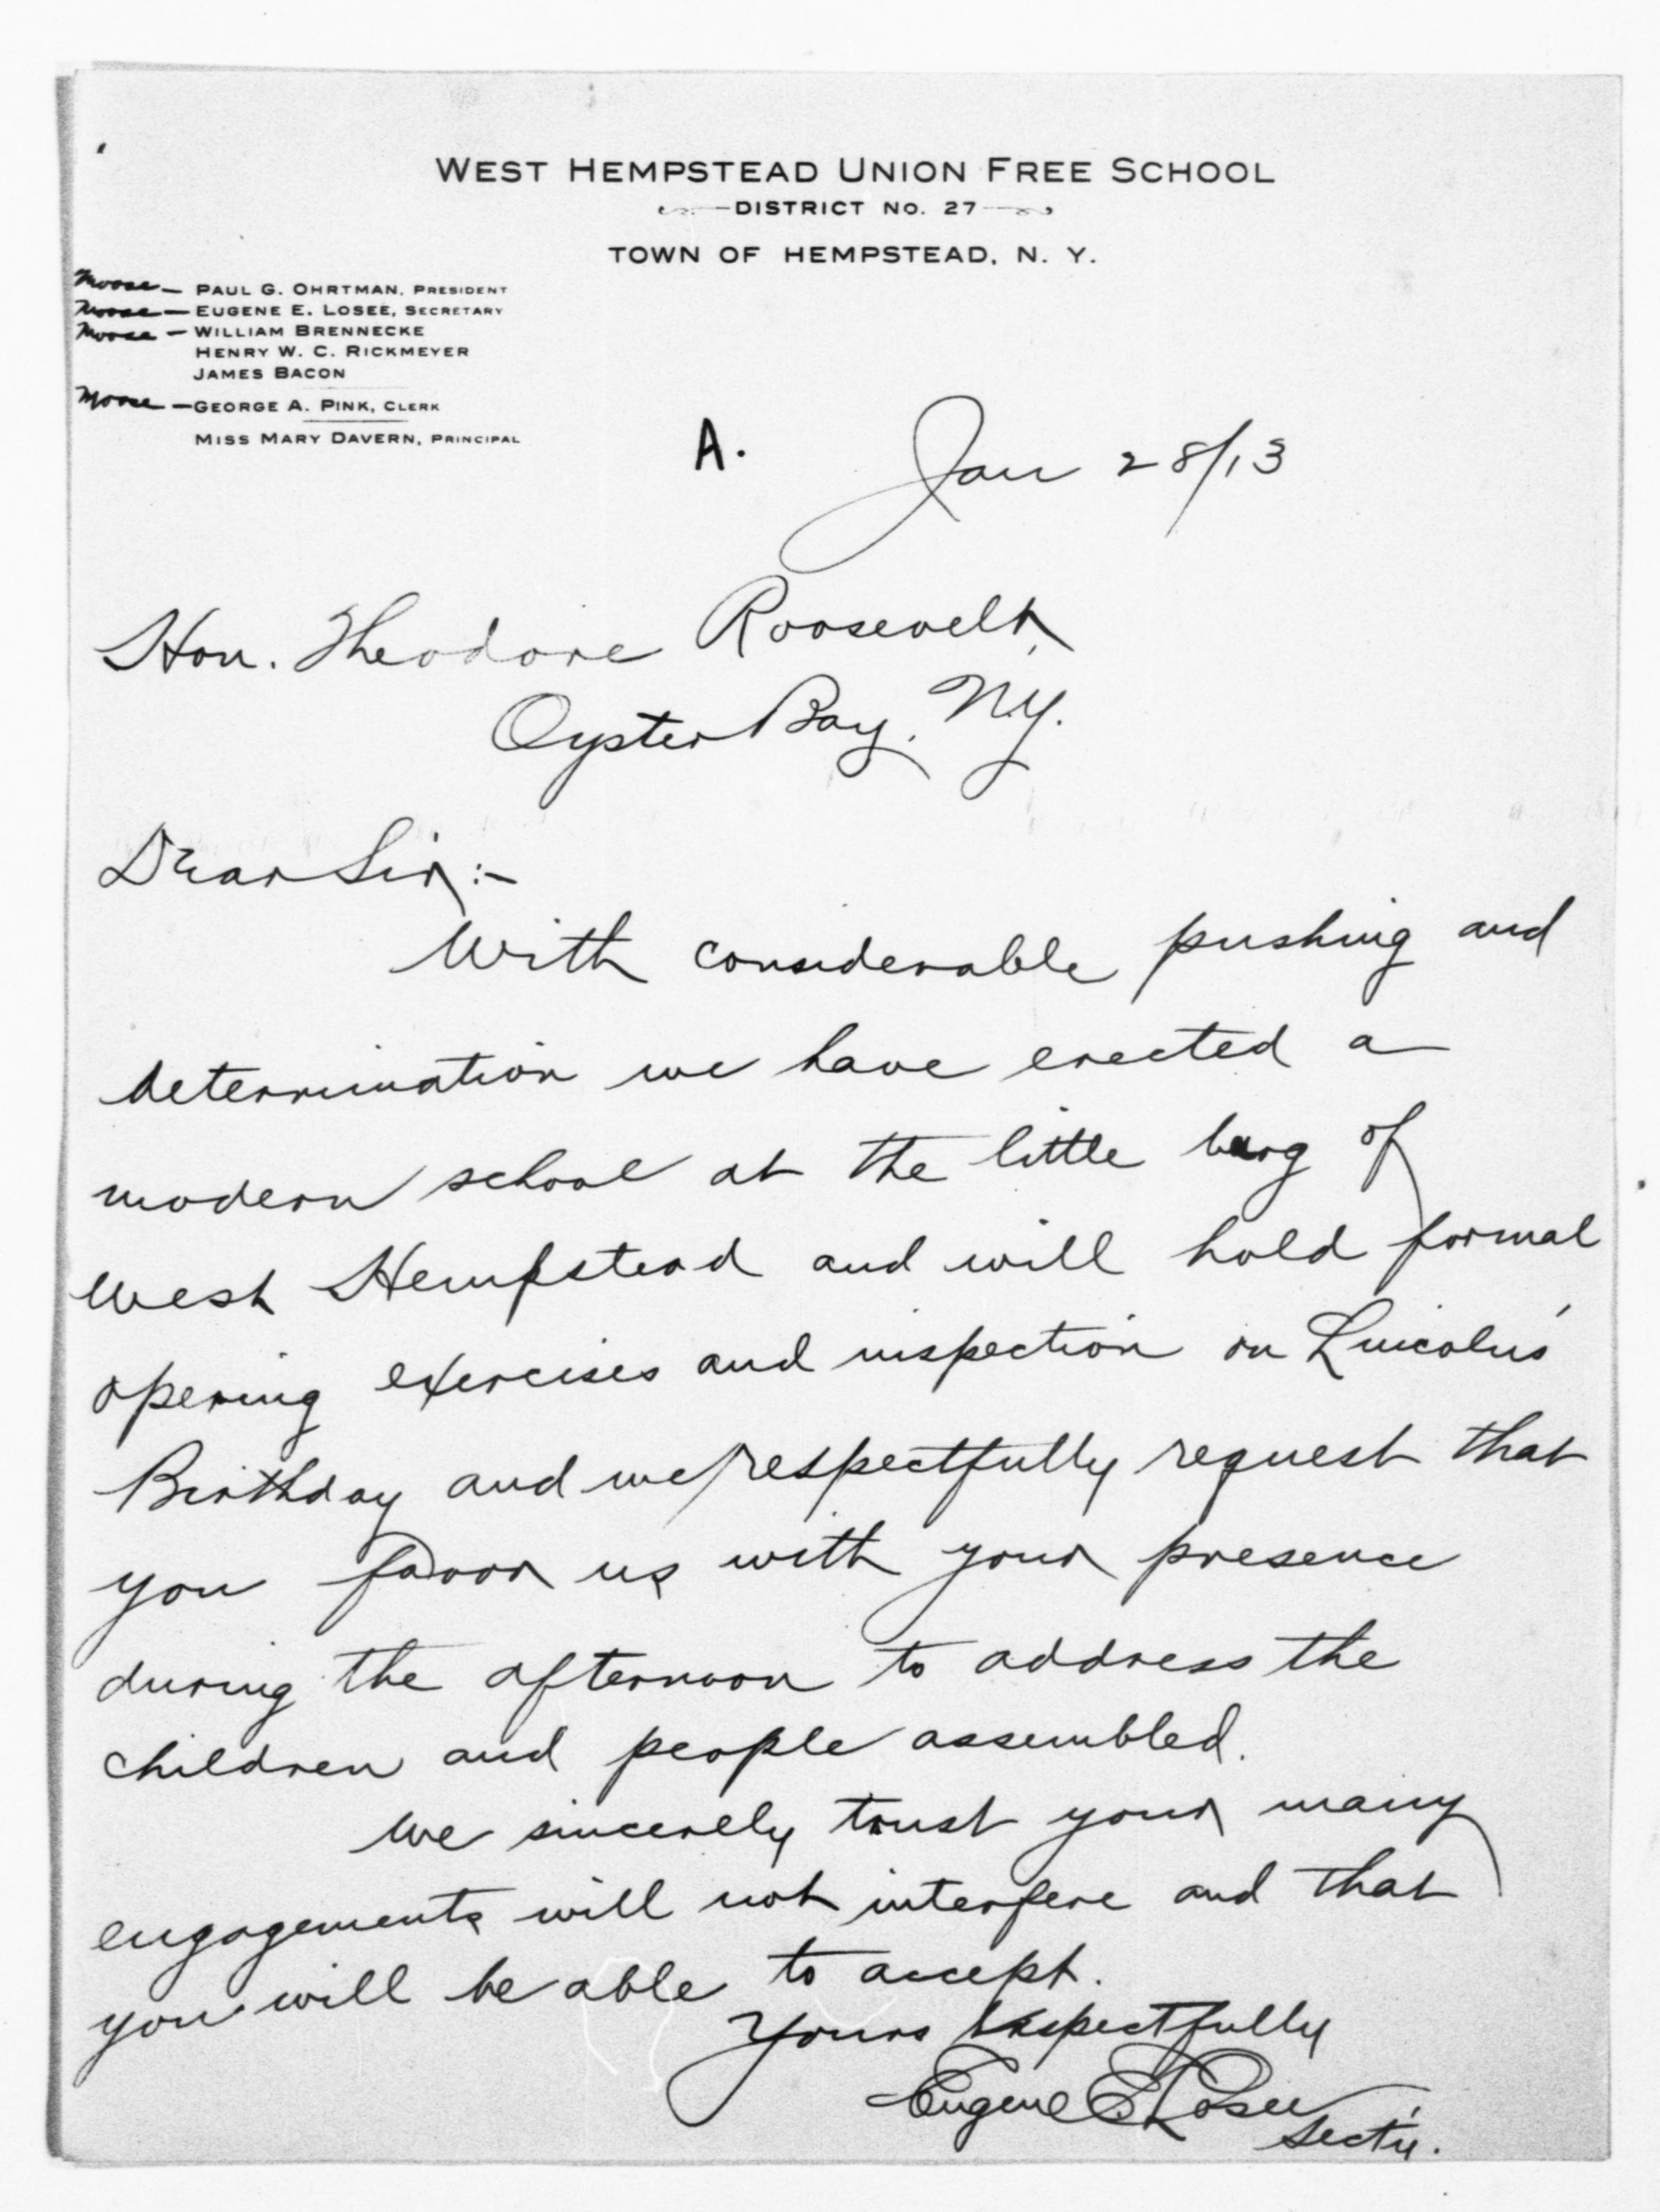 WEST HEMPSTEAD UNION FREE SCHOOL
DISTRICT No. 27
TOWN OF HEMPSTEAD, N. Y.
Moose — PAUL G. OHRTMAN, PRESIDENT
Moose — EUGENE E. LOSEE, SECRETARY
Moose — WILLIAM BRENNECKE
HENRY W. C. RICKMEYER
JAMES BACON
Moose — GEORGE A. PINK, CLERK
MISS MARY DAVERN, PRINCIPAL
A.
Jan 28/13
Hon. Theodore Roosevelt,
Oyster Bay, N.Y.
Dear Sir:-
With considerable pushing and
determination we have erected a
modern school at the little burg of
West Hempstead and will hold formal
opening exercises and inspection on Lincoln's
Birthday and we respectfully request that
you favor us with your presence
during the afternoon to address the
children and people assembled.
We sincerely trust your many
engagements will not interfere and that
you will be able to accept.
Yours respectfully
Eugene E. Losee
Sect'y.